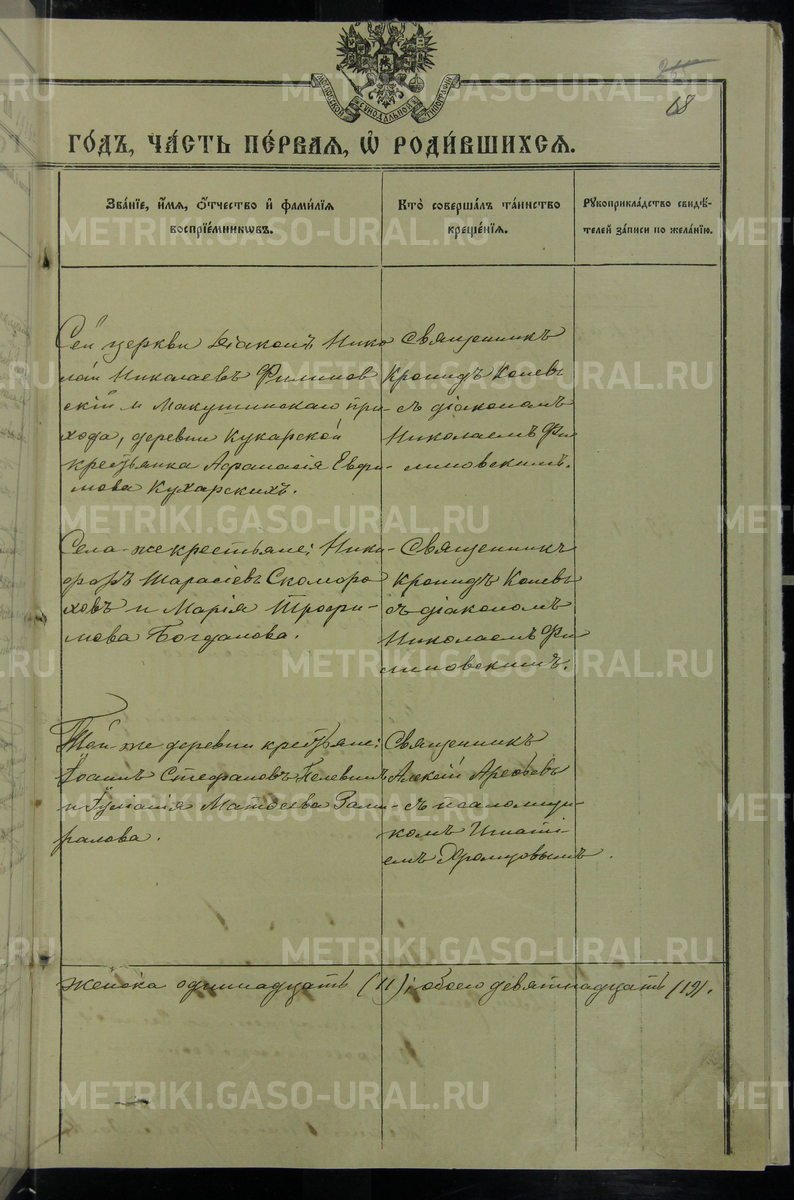 МОСКОВСКОЙ СѴНОДАЛЬНОЙ ТИПОГРАФІИ
68
ГО́ДЪ, ЧА́СТЬ ПЕ́РВАЯ, Ѡ҆ РОДИ́ВШИХСЯ.
Зва́нїе, и҆́мя, ѻ҆́тчество и҆ фами́лїя
воспрїе́мникѡвъ.
Кто̀ соверша́лъ та́инство
креще́нїя.
Рꙋкоприкла́дство свидѣ́-
телей за́писи по жела́нїю.
Сей церкви діаконъ Нико
лай Николаевъ Филинов
скій и Макушинскаго при-
хода, деревни Кукарской
крестьянка Афанасія Евфи-
мова Кухарскихъ.
Священникъ
Кронидъ Колевъ
съ діакономъ
Николаемъ Фи
линовскимъ.
Села-же крестьяне: Ники-
форъ Тарасіевъ Скоморо
ховъ и Марія Трофи-
мова Богданова.
Священникъ
Кронидъ Колевъ
съ діакономъ
Николаемъ Фи
линовскимъ.
Той-же деревни крестьяне:
Іоаннъ Стефановъ Пелевинъ
и Іуліанія Матѳеева
ралова.
Священникъ
Алексій Арефьевъ
съ псаломщи-
комъ Игнаті-
емъ Хромцовымъ.
женска одиннадцать (11); обоего девятнадцать (19).
METRIKI.GASO-URAL.RU